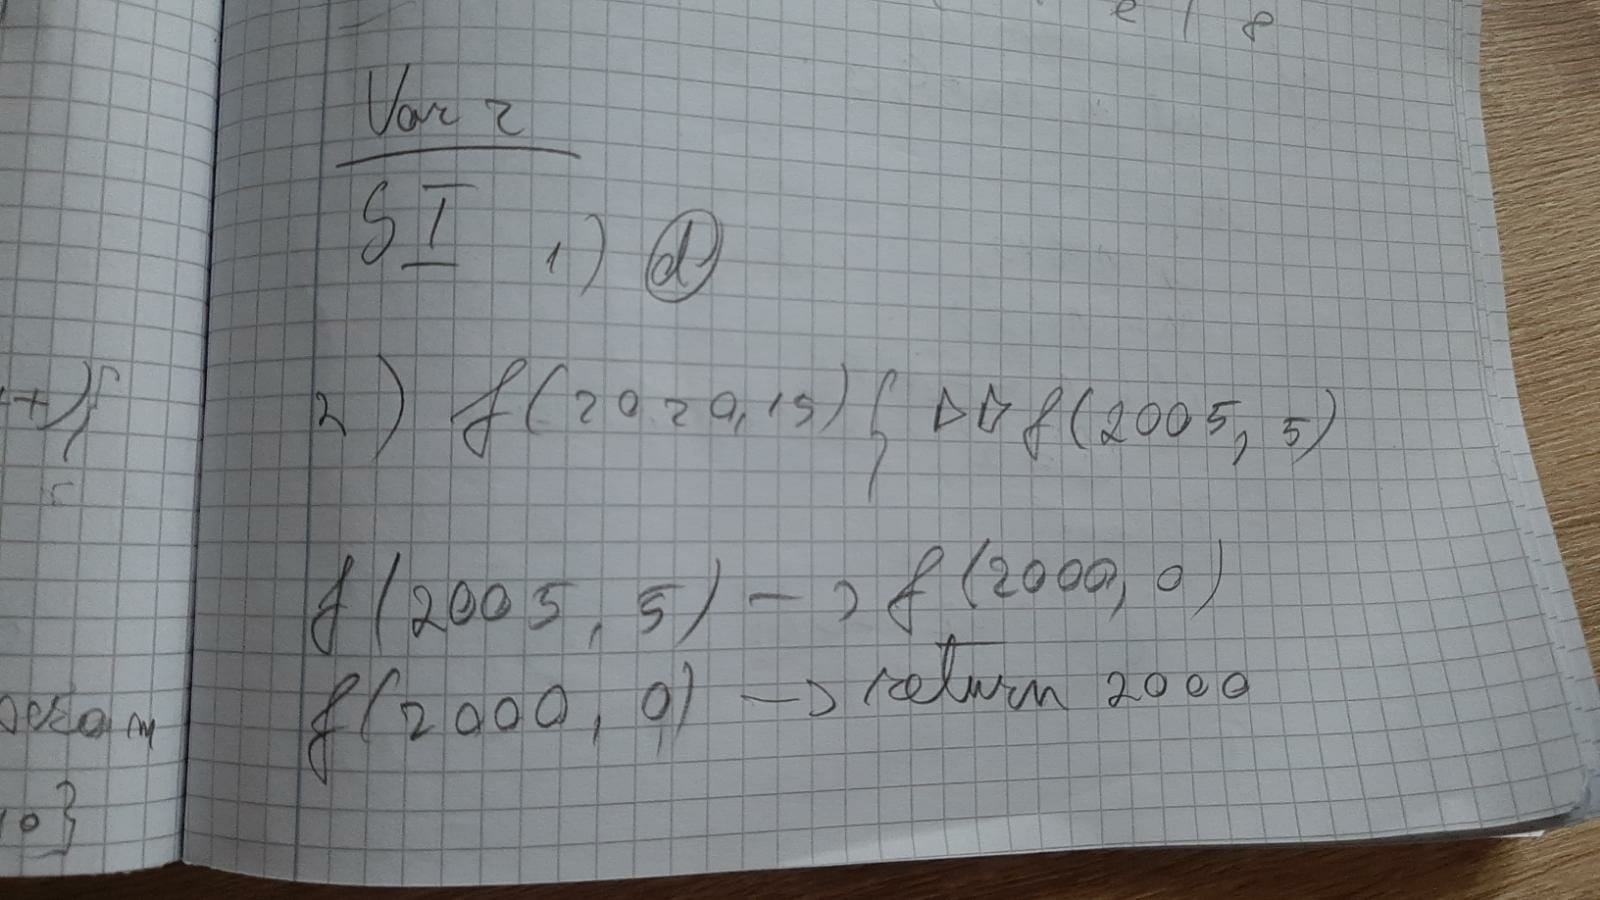 e | 8
Var 2
S I 1) d
2) f(2020, 15) { ▷▷ f(2005, 5)
f(2005, 5) -> f(2000, 0)
f(2000, 0) -> return 2000
10}